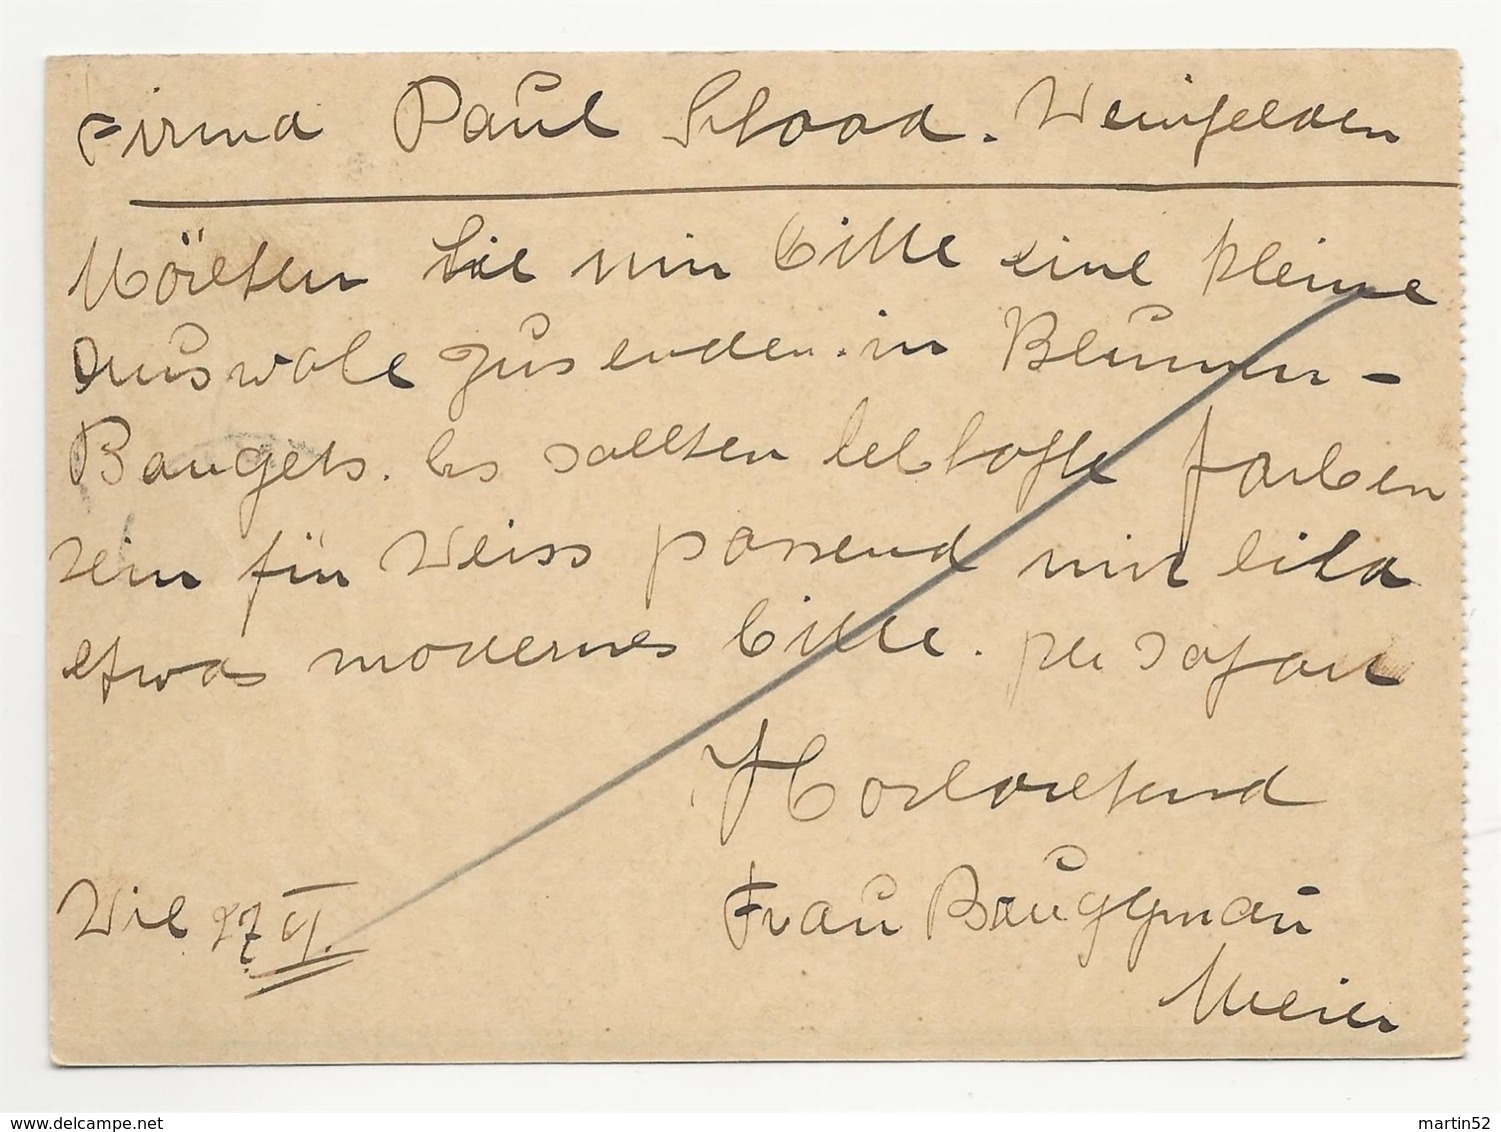 Firma Paul Schaad. Weinfelden
Möchten Sie mir bitte eine kleine
Auswahl zusenden. in Blumen-
Bougets. Es sollten lebhafte farben
sein für Weiss passend mit lila
etwas modernes bitte. per sofort
Hochachtend
Frau Bruggmann
Meier
Wil 27 VI.
martin52